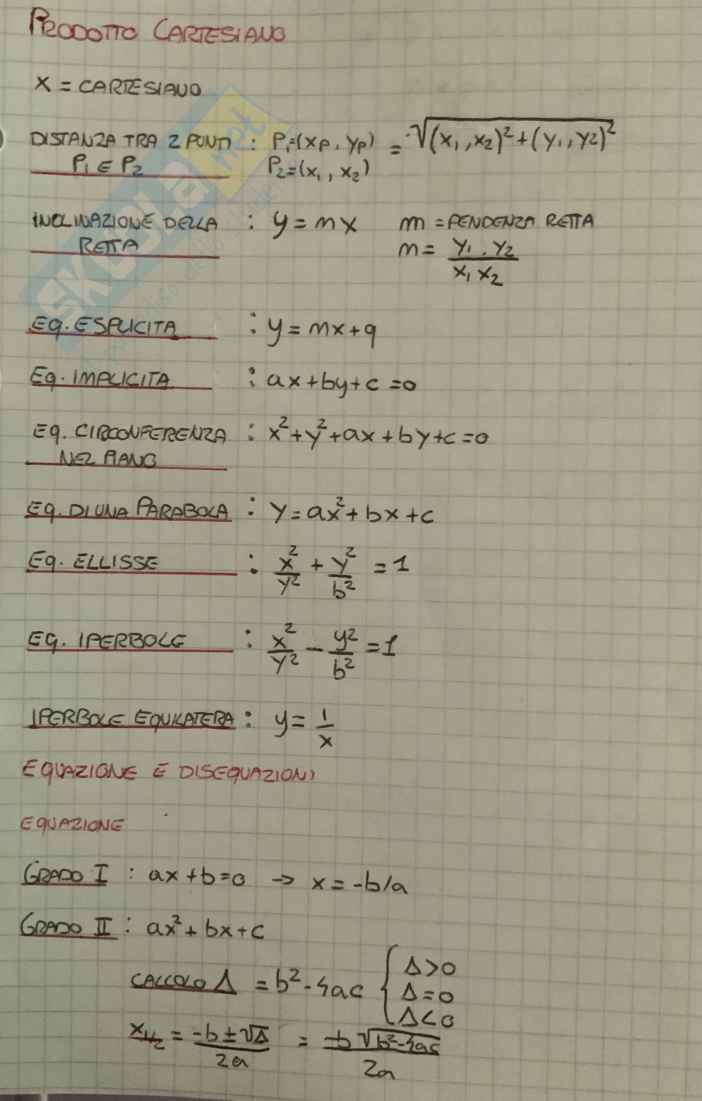 PRODOTTO CARTESIANO
X = CARTESIANO
DISTANZA TRA 2 PUNTI : P₁=(xₚ, yₚ) = √(x₁,x₂)²+(y₁,y₂)²
P₁ E P₂ P₂=(x₁, x₂)
INCLINAZIONE DELLA : y=mx m = PENDENZA RETTA
RETTA m = y₁.y₂/x₁x₂
EQ. ESPLICITA : y=mx+q
EQ. IMPLICITA : ax+by+c=0
EQ. CIRCONFERENZA : x²+y²+ax+by+c=0
NEL PIANO
EQ. DI UNA PARABOLA : y=ax²+bx+c
EQ. ELLISSE : x²/y² + y²/b² = 1
EQ. IPERBOLE : x²/y² - y²/b² = 1
IPERBOLE EQUILATERA : y = 1/x
EQUAZIONE E DISEQUAZIONI
EQUAZIONE
GRADO I : ax+b=0 → x=-b/a
GRADO II : ax²+bx+c
CALCOLO Δ = b²-4ac { Δ>0
Δ=0
Δ<0
x₁/₂ = -b±√Δ/2a = -b√b²-4ac/2a
skuola.net